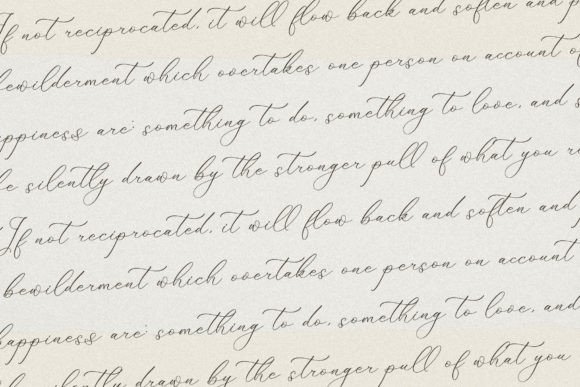 If not reciprocated, it will flow back and soften and
bewilderment which overtakes one person on account of
happiness are: something to do, something to love, and
silently drawn by the stronger pull of what you
If not reciprocated, it will flow back and soften and
bewilderment which overtakes one person on account
happiness are: something to do, something to love, and
silently drawn by the stronger pull of what you